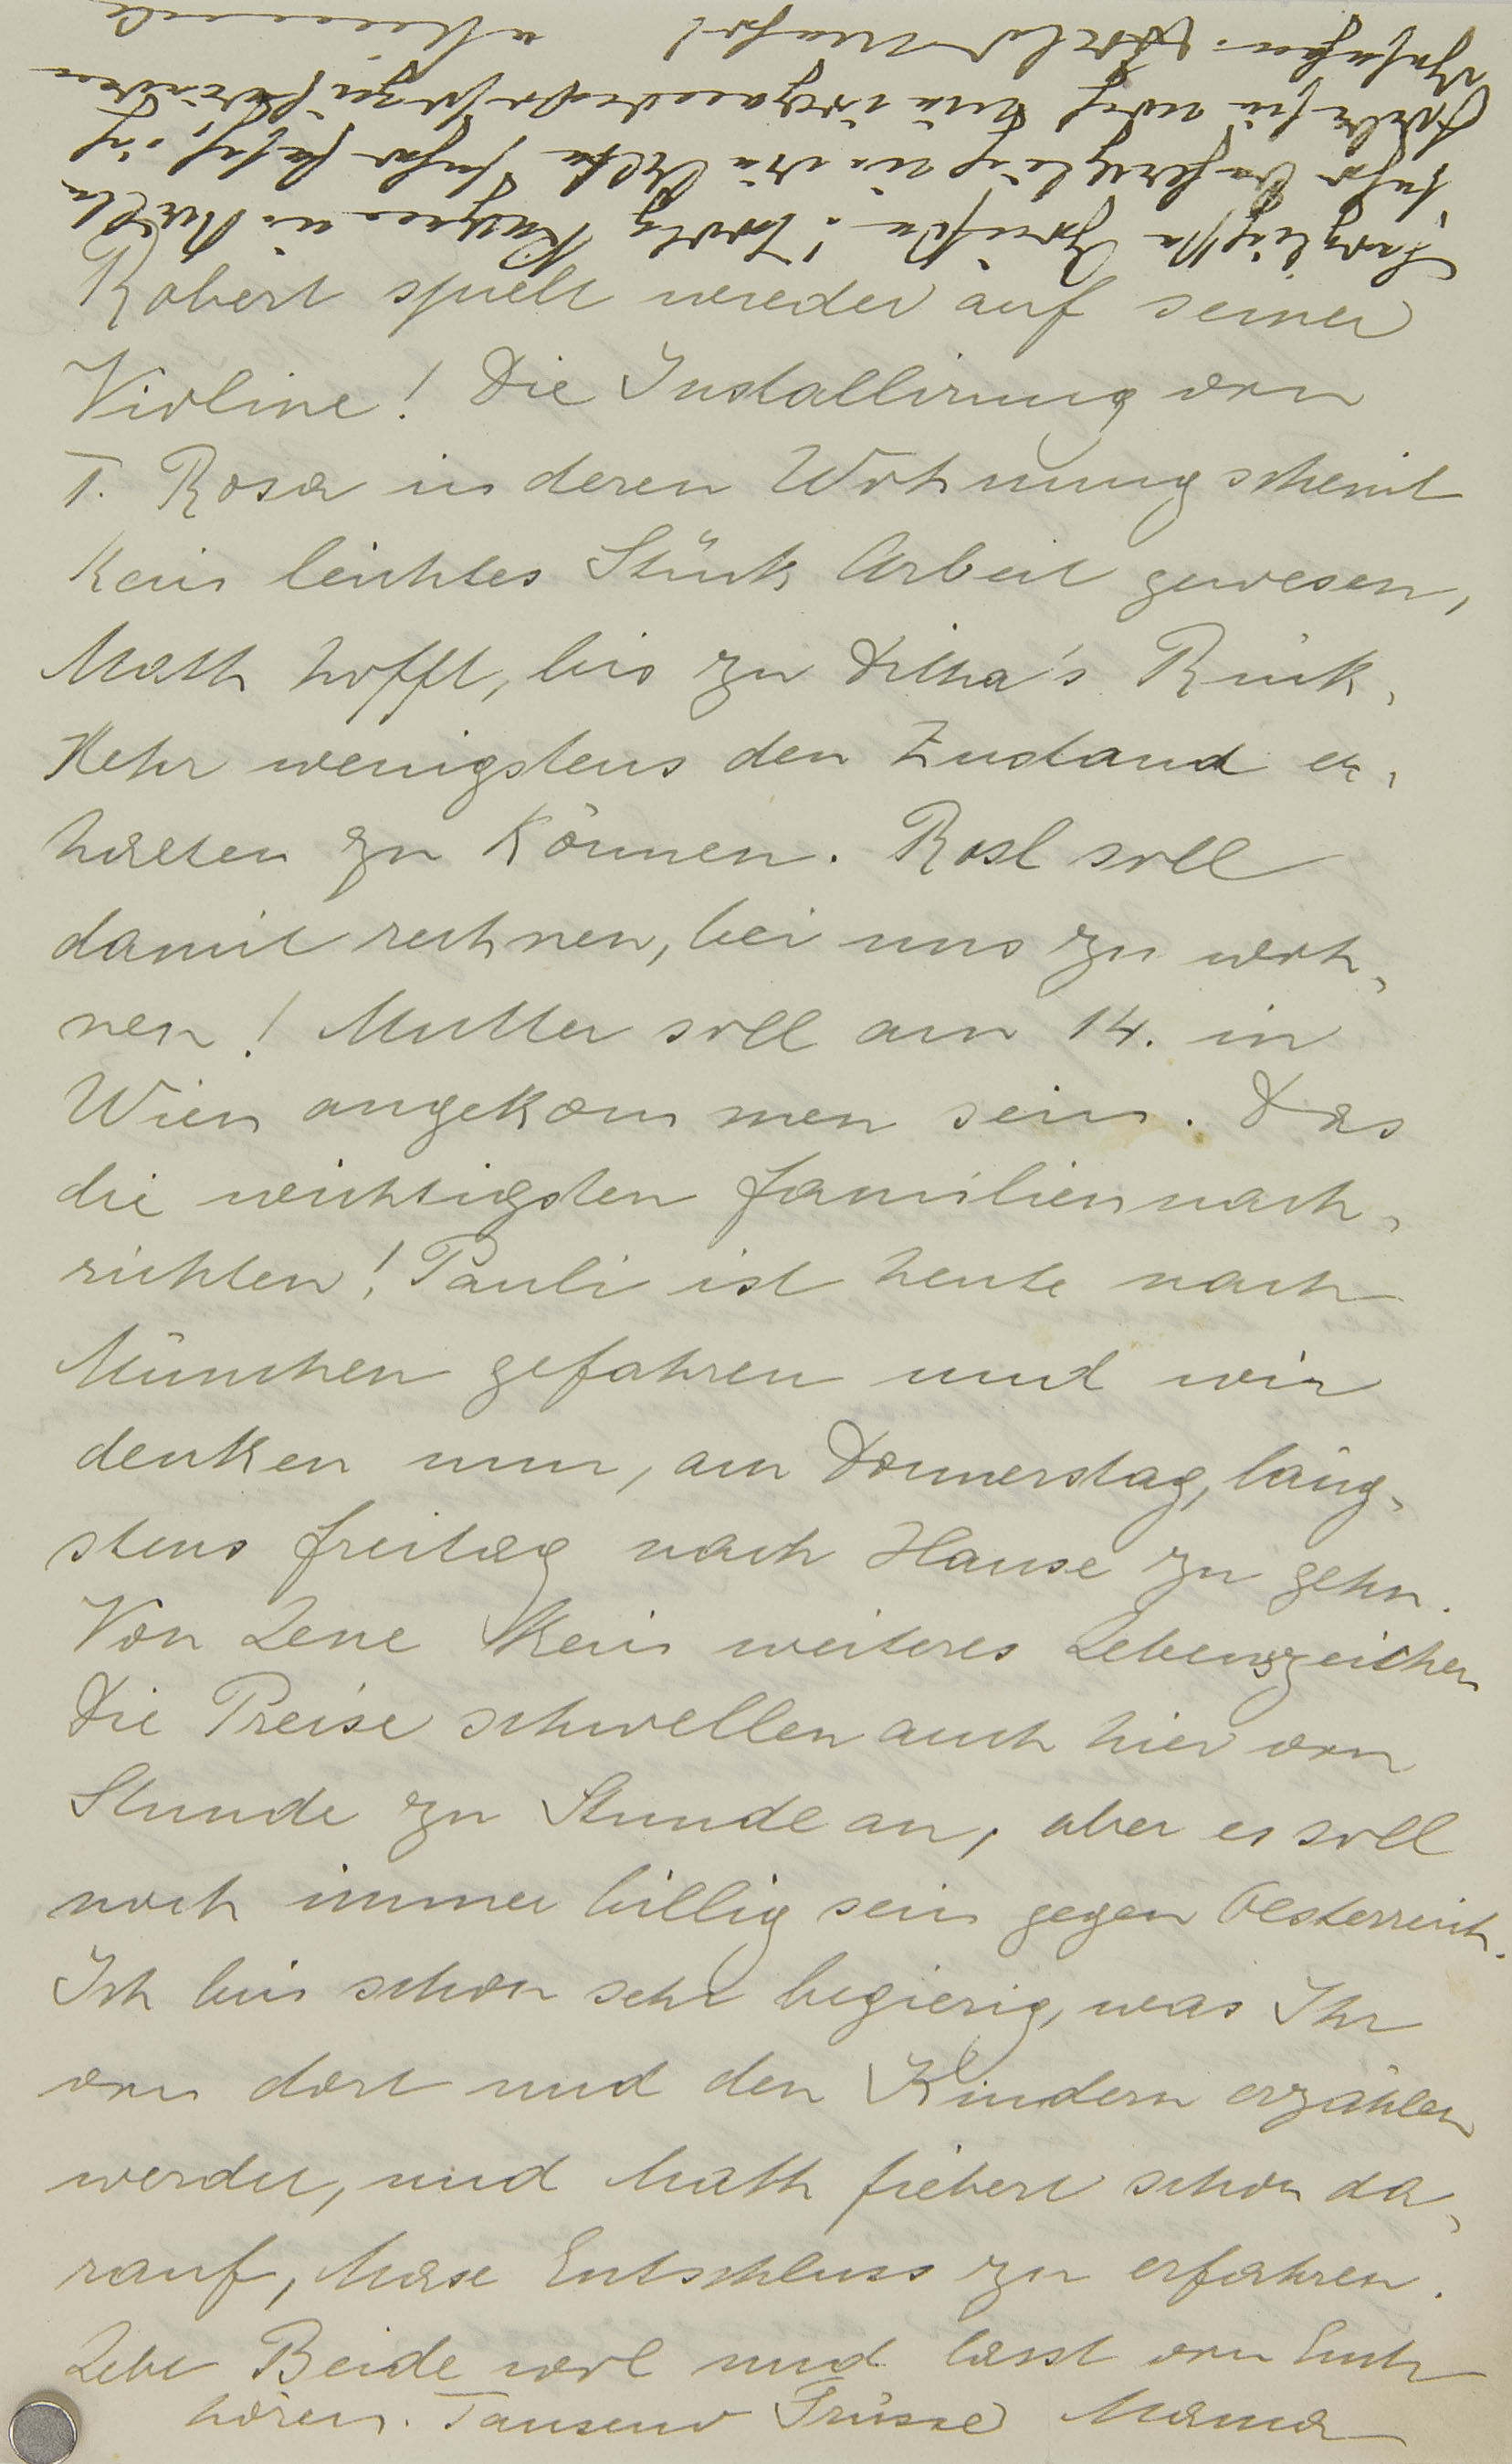 Robert spielt wieder auf seiner
Violine! Die Installirung von
T. Rosa in deren Wohnung scheint
kein leichtes Stück Arbeit gewesen,
Math hofft, bis zu Ditha's Rück-
kehr wenigstens den Zustand er-
halten zu können. Rosl soll
damit rechnen, bei uns zu woh-
nen! Mutter soll am 14. in
Wien angekommen sein. Das
die wichtigsten Familiennach-
richten! Pauli ist heute nach
München gefahren und wir
denken nun, am Donnerstag, läng-
stens Freitag nach Hause zu gehn.
Von Lene kein weiteres Lebenszeichen
Die Preise schwellen auch hier von
Stunde zu Stunde an, aber es soll
noch immer billig sein gegen Oesterreich.
Ich bin schon sehr begierig, was Ihr
von dort und den Kindern erzählen
werdet, und Math fiebert schon da-
rauf, Mase Entschluss zu erfahren.
Lebt Beide wol und lasst von Euch
hören. Tausend Grüsse Mama
Herzlichste Grüße! Trotz Regen u. Kälte